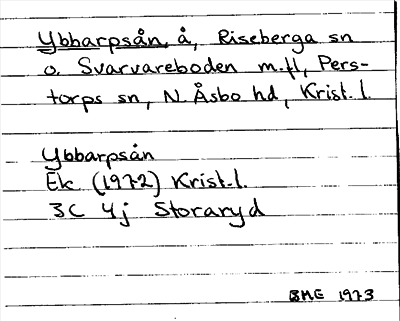 Ybbarpsån, å, Riseberga sn
o. Svarvareboden m.fl, Pers-
torps sn, N. Åsbo hd, Krist. l.
Ybbarpsån
Ek (1972) Krist. l.
3C 4j Storaryd
BME 1973